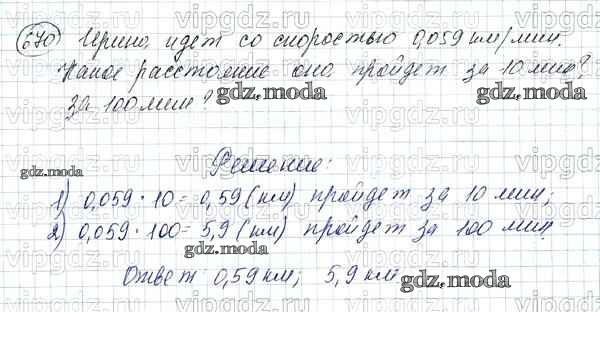 670 Ирина идет со скоростью 0,059 км/мин.
Какое расстояние она пройдет за 10 мин?
за 100 мин?
gdz.moda
gdz.moda
Решение:
gdz.moda
1) 0,059 · 10 = 0,59 (км) пройдет за 10 мин;
2) 0,059 · 100 = 5,9 (км) пройдет за 100 мин.
gdz.moda
Ответ: 0,59 км; 5,9 км
gdz.moda